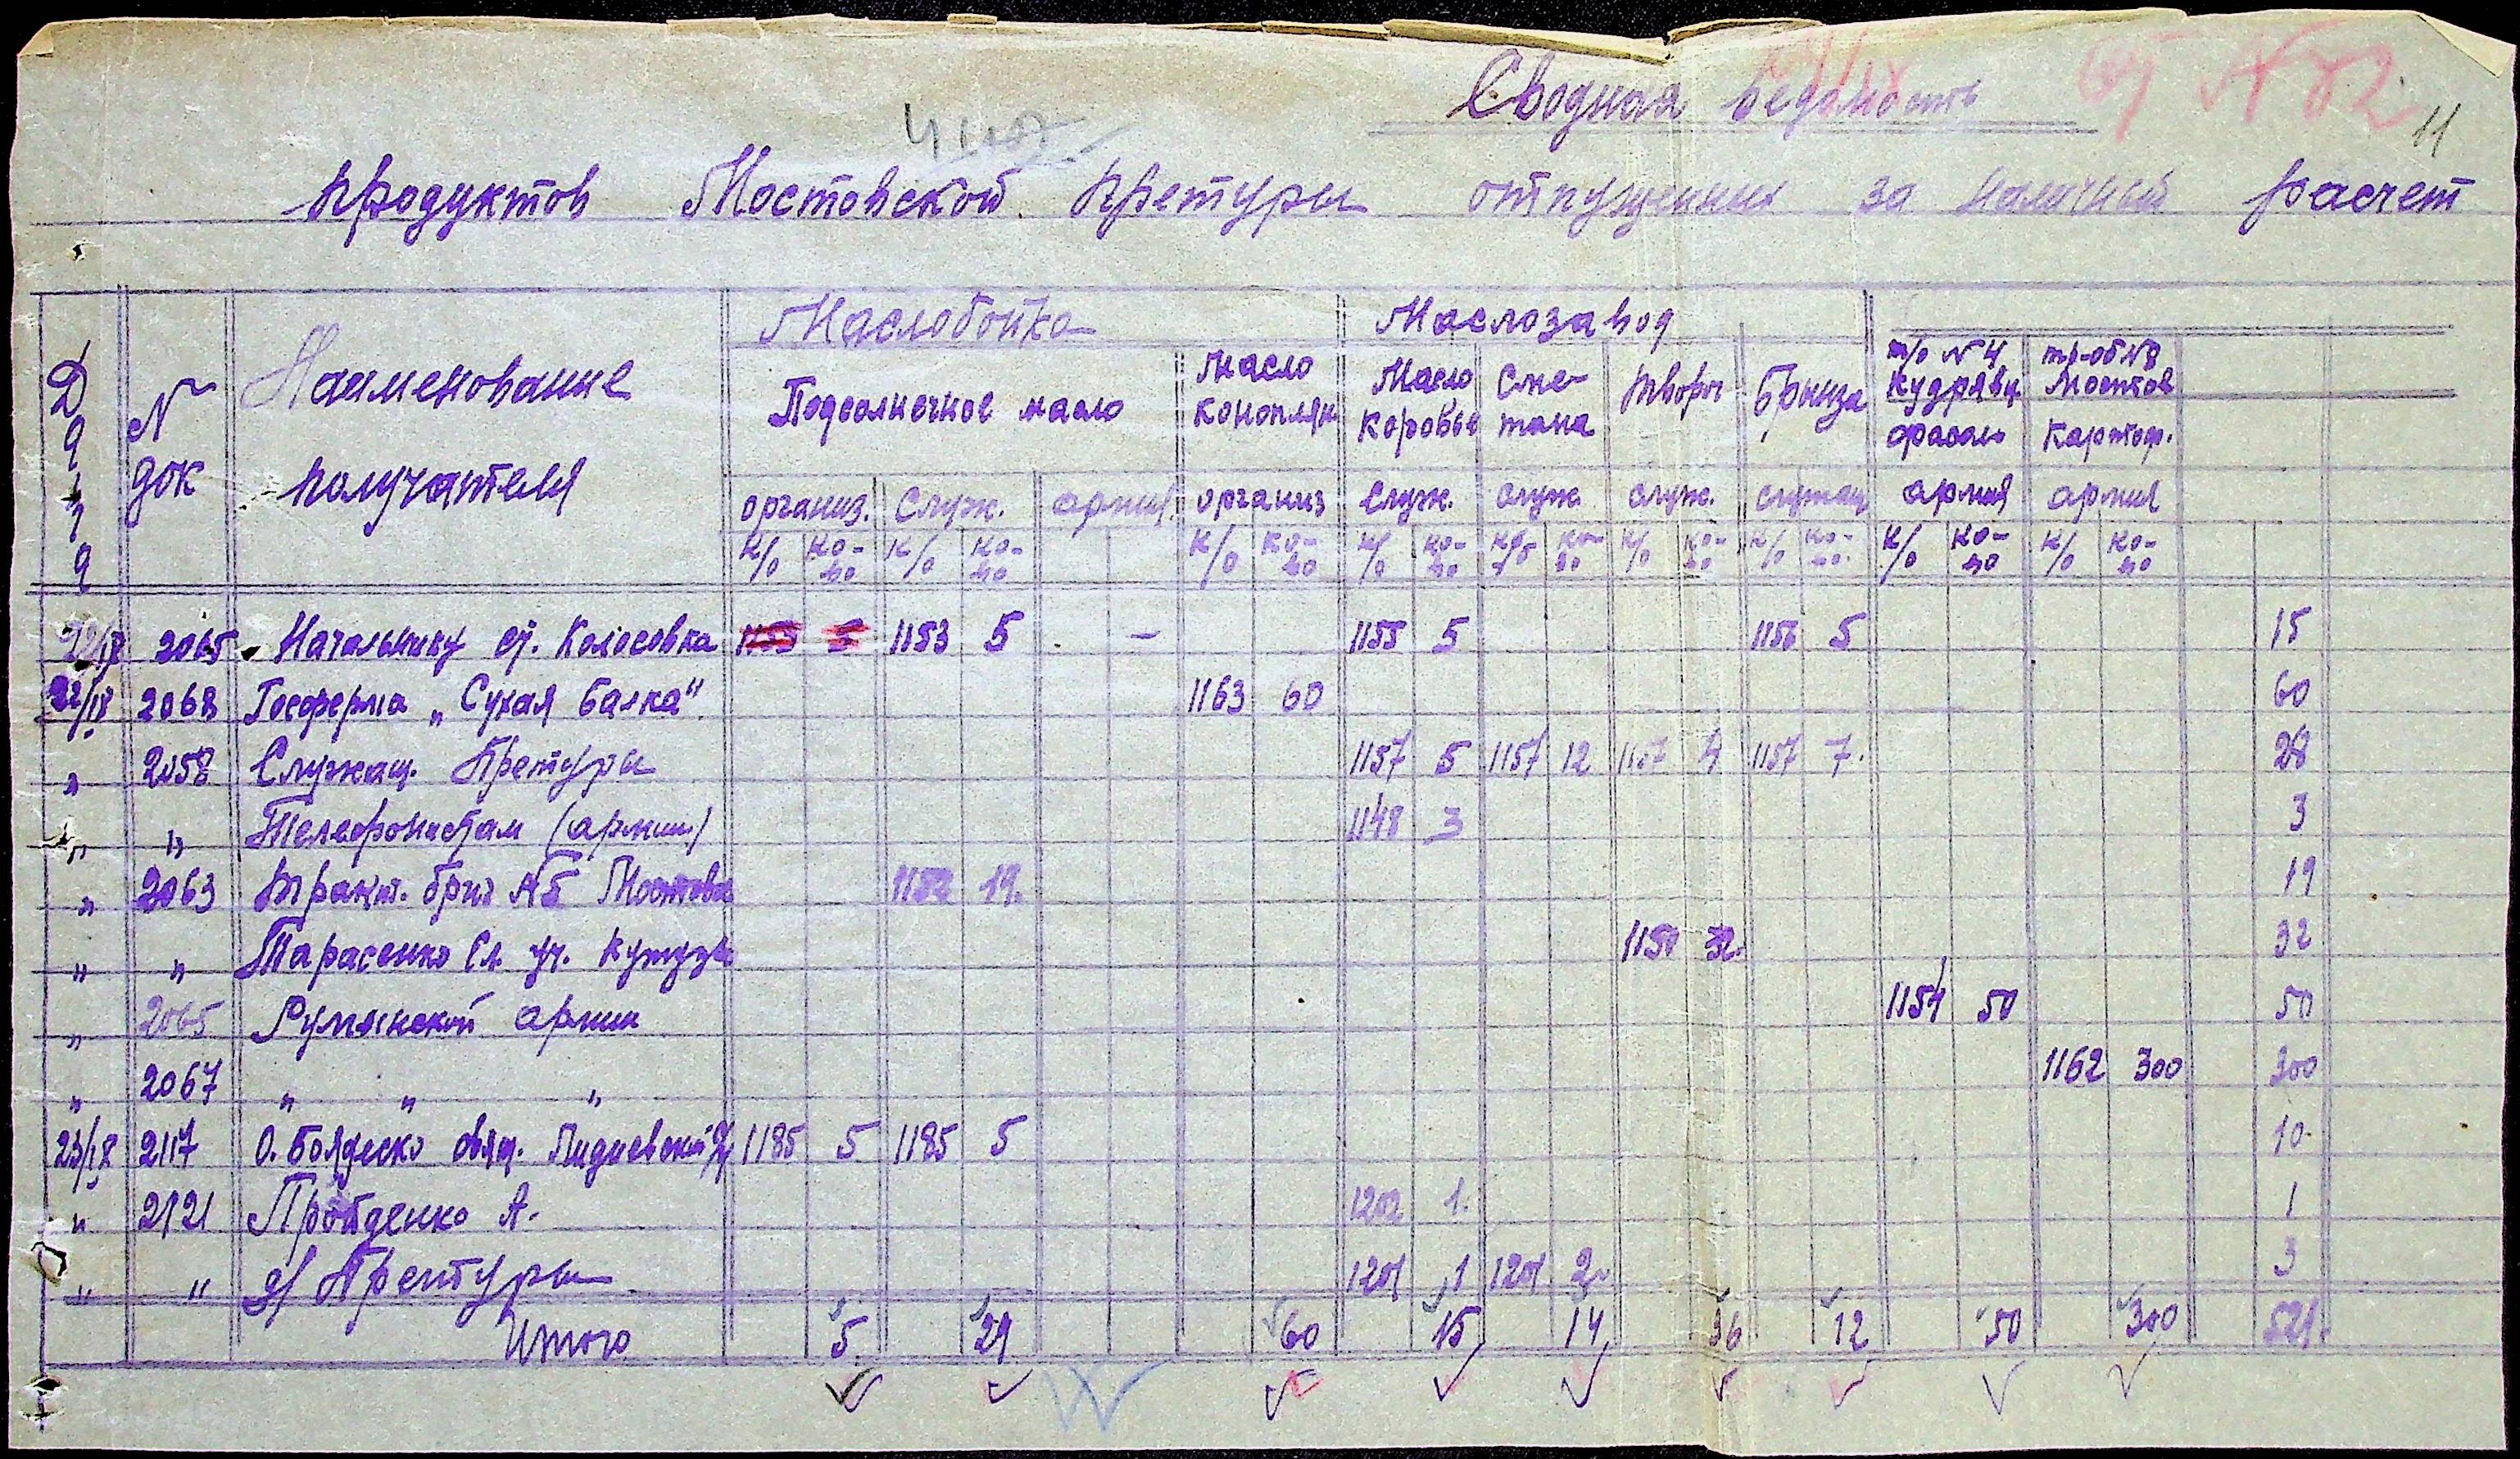 Сводная ведомость
№ 82
11
продуктов Мостовской Претуры отпущенных за наличный расчет
Дата
№ док
Наименование получателя
Маслобойка Маслозавод
Подсолнечное масло
Масло коноплян
Масло коровье
Сметана
творог
Брынза
т/о № 4 Кудрявц фасоль
тр-об №8 Мостков Картоф.
организ. Служ. армия организ Служ. служ. служ. служащ армия армия
к/о ко-во к/о ко-во к/о ко-во к/о ко-во к/о ко-во к/о ко-во к/о ко-во к/о ко-во к/о ко-во
22/IX 2065 Начальнику ст. Колосовка 1153 5 1153 5 - 1155 5 1156 5 15
22/IX 2068 Госферма „Сухая Балка" 1163 60 60
" 2058 Служащ. Претуры 1157 5 1157 12 1157 4 1157 7. 28
" " Телефонистам (армии) 1148 3 3
" 2063 Тракт. бриг №5 Мостово 1152 19. 19
" " Тарасенко Сл. уч. Кутуз 1150 32. 32
" 2065 Румынской армии 1154 50 50
" 2067 " " " 1162 300 300
23/IX 2117 О. Боядеско свящ. Лидиевской 1185 5 1185 5 10
" 2121 Пройденко А. 1202 1. 1
" " д/ Претуры 1201 1 1201 2. 3
Итого 5. 29 60 15 14 36 12 50 300 521.